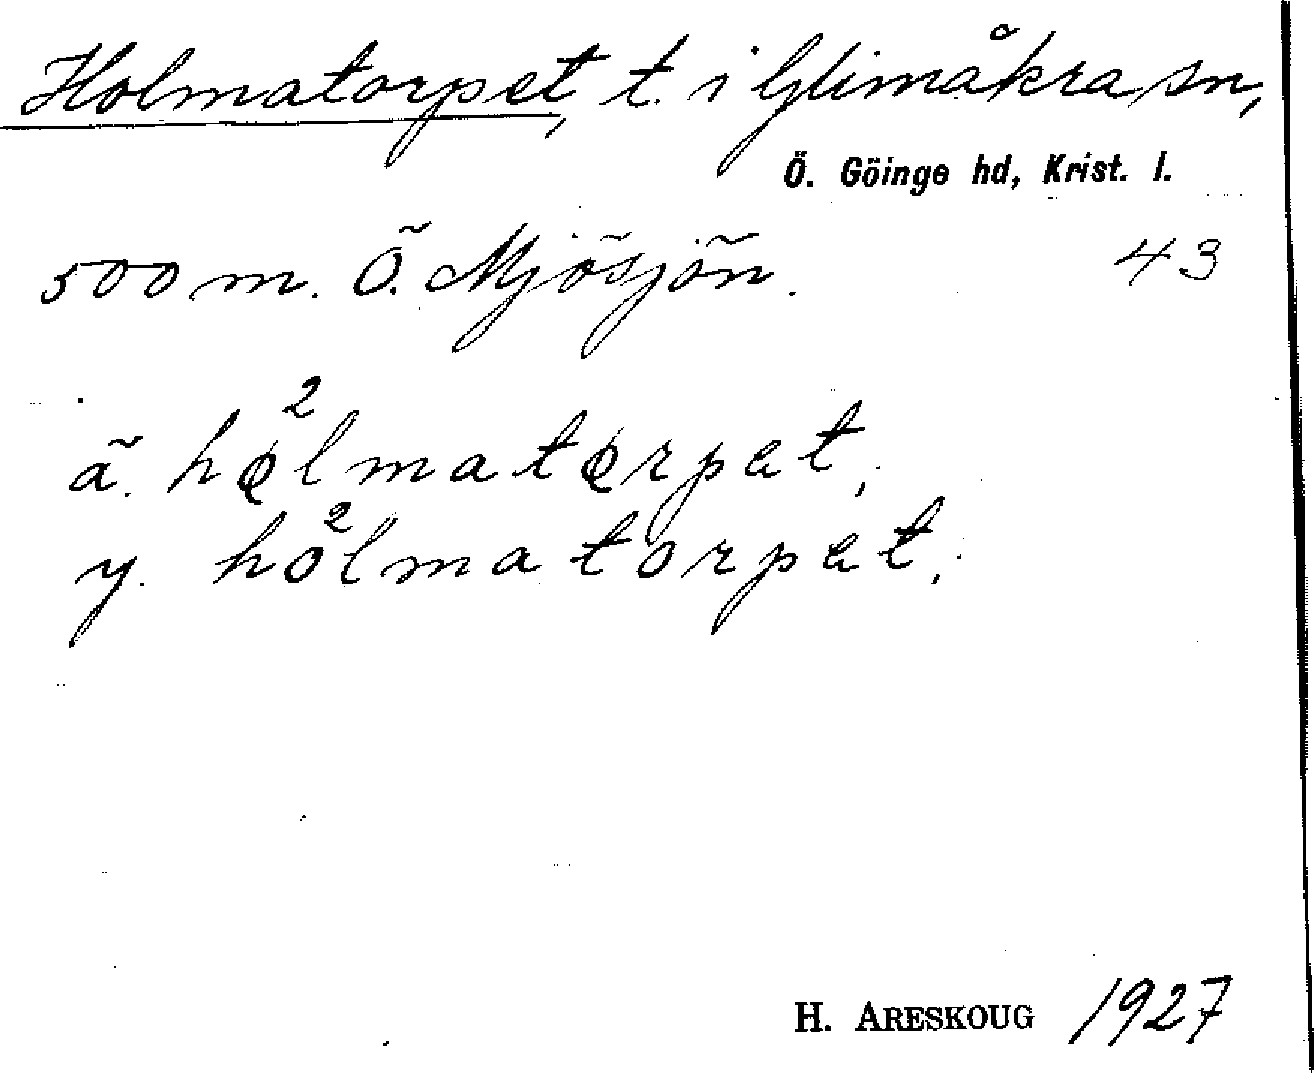 Holmatorpet, t. i Glimåkra sn,
Ö. Göinge hd, Krist. l.
500 m. Ö. Mjösjön. 43
ä. hǫ²lmatǫrpet,
y. ho²lmatorpet.
H. ARESKOUG 1927